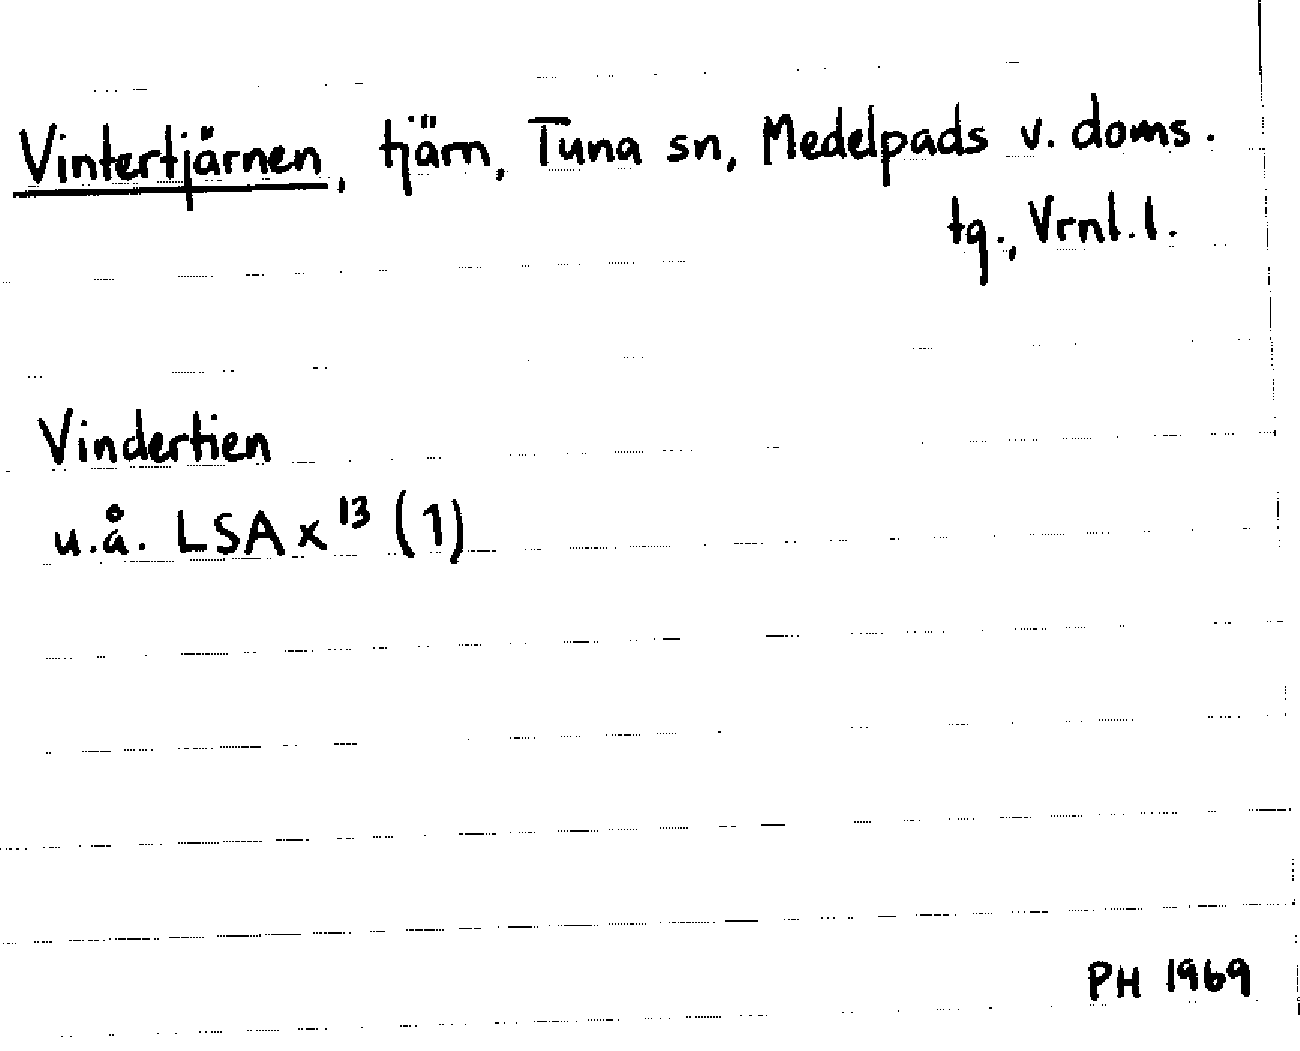 Vintertjärnen, tjärn, Tuna sn, Medelpads v. doms.
tg., Vrnl. l.
Vindertien
u.å. LSA x¹³ (1)
PH 1969